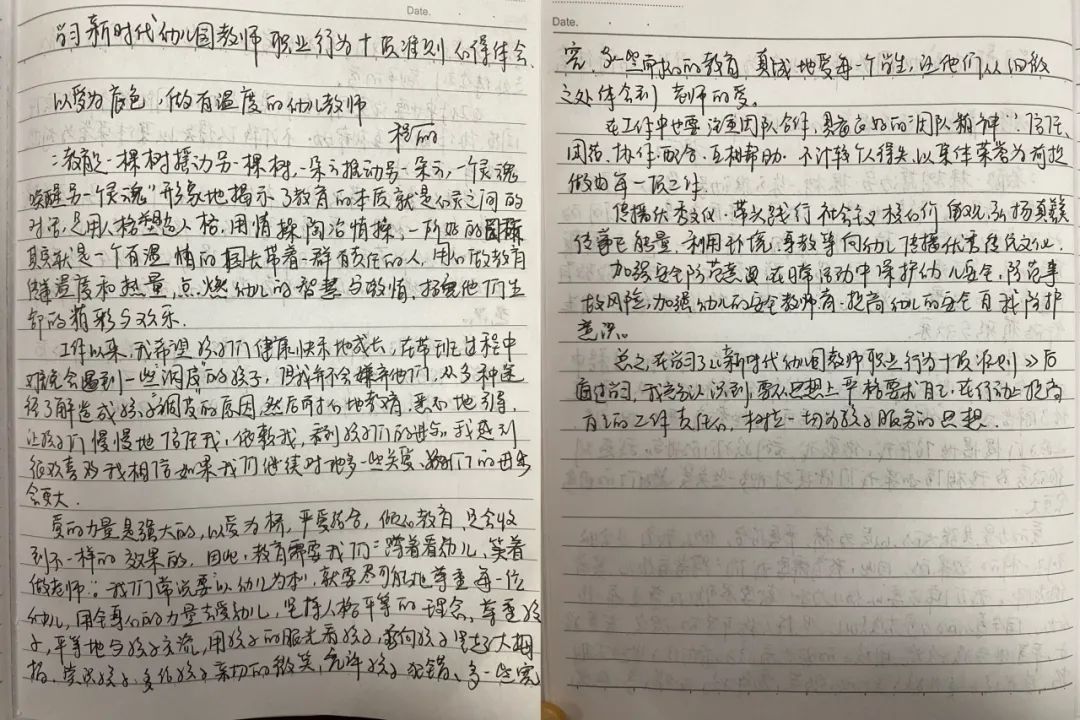 Date.
学习新时代幼儿园教师职业行为十项准则心得体会
以爱为底色,做有温度的幼儿教师
"教育是一棵树摇动另一棵树,一朵云推动另一朵云,一个灵魂
唤醒另一个灵魂"形象地揭示了教育的本质就是人与人之间的
对话,是用人格塑造人格,用情操陶冶情操,一所好的
就是一个有温情的园长带着一群有责任的人,用心做教育
温度和热量,点燃幼儿的智慧与激情,他们生
命的精彩与欢乐.
工作以来,我希望孩子们健康快乐地成长,在带班过程中
难免会遇到一些"调皮"的孩子,但我并不会嫌弃他们,从多种途
径了解造成孩子调皮的原因,然后耐心地教育,地引导,
让孩子们慢慢地信任我,依赖我,看到孩子们的进步,我感到
很欢喜,我相信如果我们继续对他多一些关爱,他们的进步
会更大.
爱的力量是强大的,以爱为桥,严爱结合,做好教育,是会收
到不一样的效果的,因此,教育需要我们"蹲着看幼儿,笑着
做老师"。我们常说要"以幼儿为本",就要尽可能地尊重每一位
幼儿,用全身心的力量去爱幼儿,坚持人格平等的理念,尊重孩
子,平等地与孩子交流,用孩子的眼光看孩子,向孩子竖起大拇
指,赏识孩子,多给孩子亲切的微笑,允许孩子犯错,多一些宽
Date.
容,多一些的教育,真诚地爱每一个学生,让他们从细微
之处体会到老师的爱。
在工作中也要注重团队合作,具有良好的"团队精神":信任、
团结、协作、配合、互相帮助,不计较个人得失,以集体荣誉为前提
做好每一项工作
传播优秀文化,带头践行社会主义核心价值观,弘扬真善美
传递正能量,利用环境、身教等向幼儿传播优秀传统文化,
加强安全防范意识,在日常活动中保护幼儿安全,防范事
故风险,加强幼儿的安全教育,提高幼儿的安全自我防护
意识。
总之,在学习了《新时代幼儿园教师职业行为十项准则》后
通过学习,我充分认识到,要从思想上严格要求自己,在行动上提高
自己的工作责任心,树立一切为孩子服务的思想.